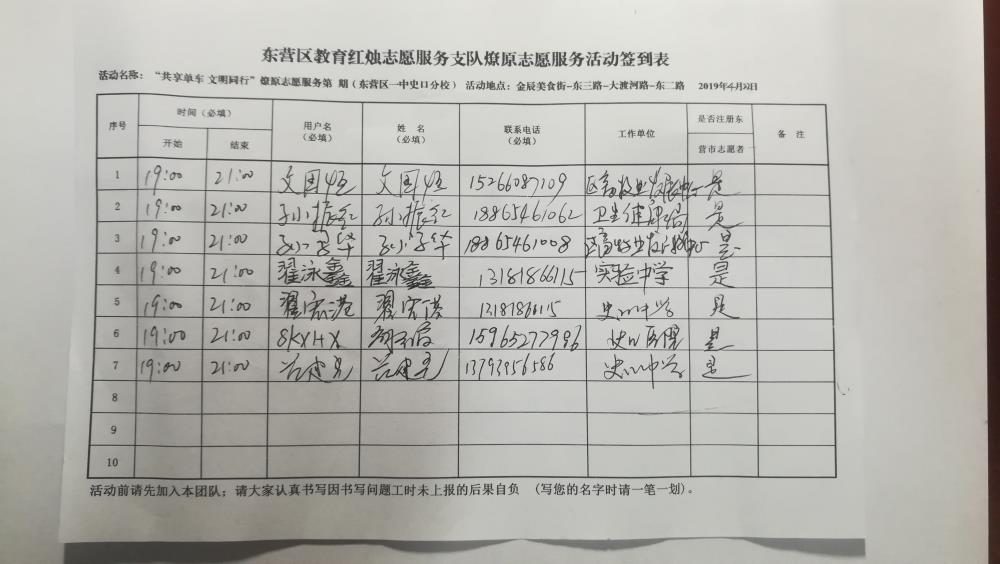 东营区教育红烛志愿服务支队燎原志愿服务活动签到表
活动名称：“共享单车 文明同行”燎原志愿服务第 期（东营区一中史口分校） 活动地点：金辰美食街-东三路-大渡河路-东二路 2019年4月日
序号 时间（必填） 用户名（必填） 姓 名（必填） 联系电话（必填） 工作单位 是否注册东营市志愿者 备 注
开始 结束
1 19:00 21:00 文国恒 文国恒 15266087109 是
2 19:00 21:00 孙振红 孙振红 18865461062 卫生健康局 是
3 19:00 21:00 18865461008 是
4 19:00 21:00 翟泳鑫 翟泳鑫 13181866115 实验中学 是
5 19:00 21:00 翟宏港 翟宏港 13181866115 史口中学 是
6 19:00 21:00 8KXHX 15965277986 史口医院 是
7 19:00 21:00 13793956586 史口中学 是
8
9
10
活动前请先加入本团队；请大家认真书写因书写问题工时未上报的后果自负 （写您的名字时请一笔一划）。